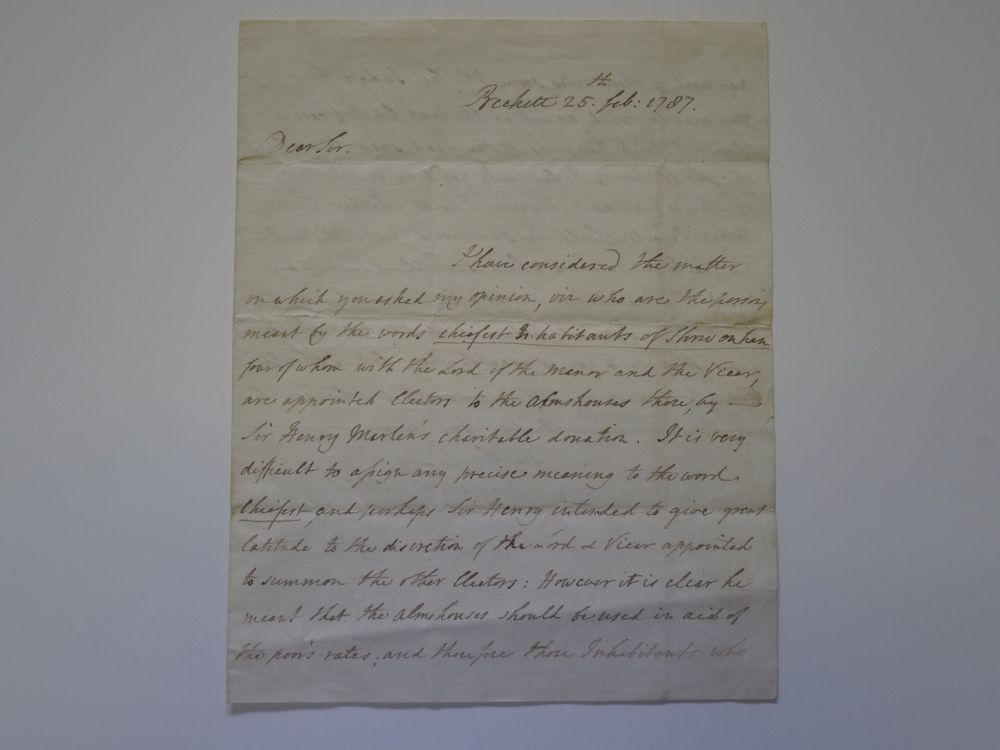 Beckett 25.th feb: 1787.
Dear Sir.
I have considered the matter
on which you asked my opinion, viz who are the persons
meant by the words chiefest Inhabitants of Shrivenham
four of whom with the Lord of the Manor and the Vicar,
are appointed Electors to the Almshouses there, by —
Sir Henry Marten's charitable donation. It is very
difficult to assign any precise meaning to the word
Chiefest, and perhaps Sir Henry intended to give great
latitude to the discretion of the Lord & Vicar appointed
to summon the other Electors: However it is clear he
meant that the Almshouses should be used in aid of
the poor's rates, and therefore those Inhabitants who